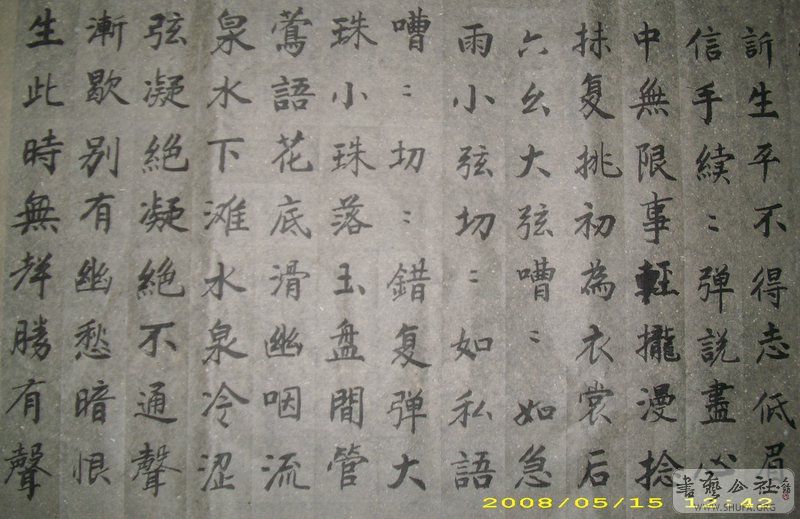 訴生平不得志低眉
信手續：弹說盡心
中無限事輕攏漫捻
抹复挑初為衣裳后
六幺大弦嘈：如急
雨小弦切：如私語
嘈：切：錯复弹大
珠小珠落玉盘間管
鶯語花底滑幽咽流
泉水下滩水泉冷涩
弦凝絶凝絶不通聲
漸歇别有幽愁暗恨
生此時無勝有聲
2008/05/15 12:42
書藝公社
WWW.SHUFA.ORG